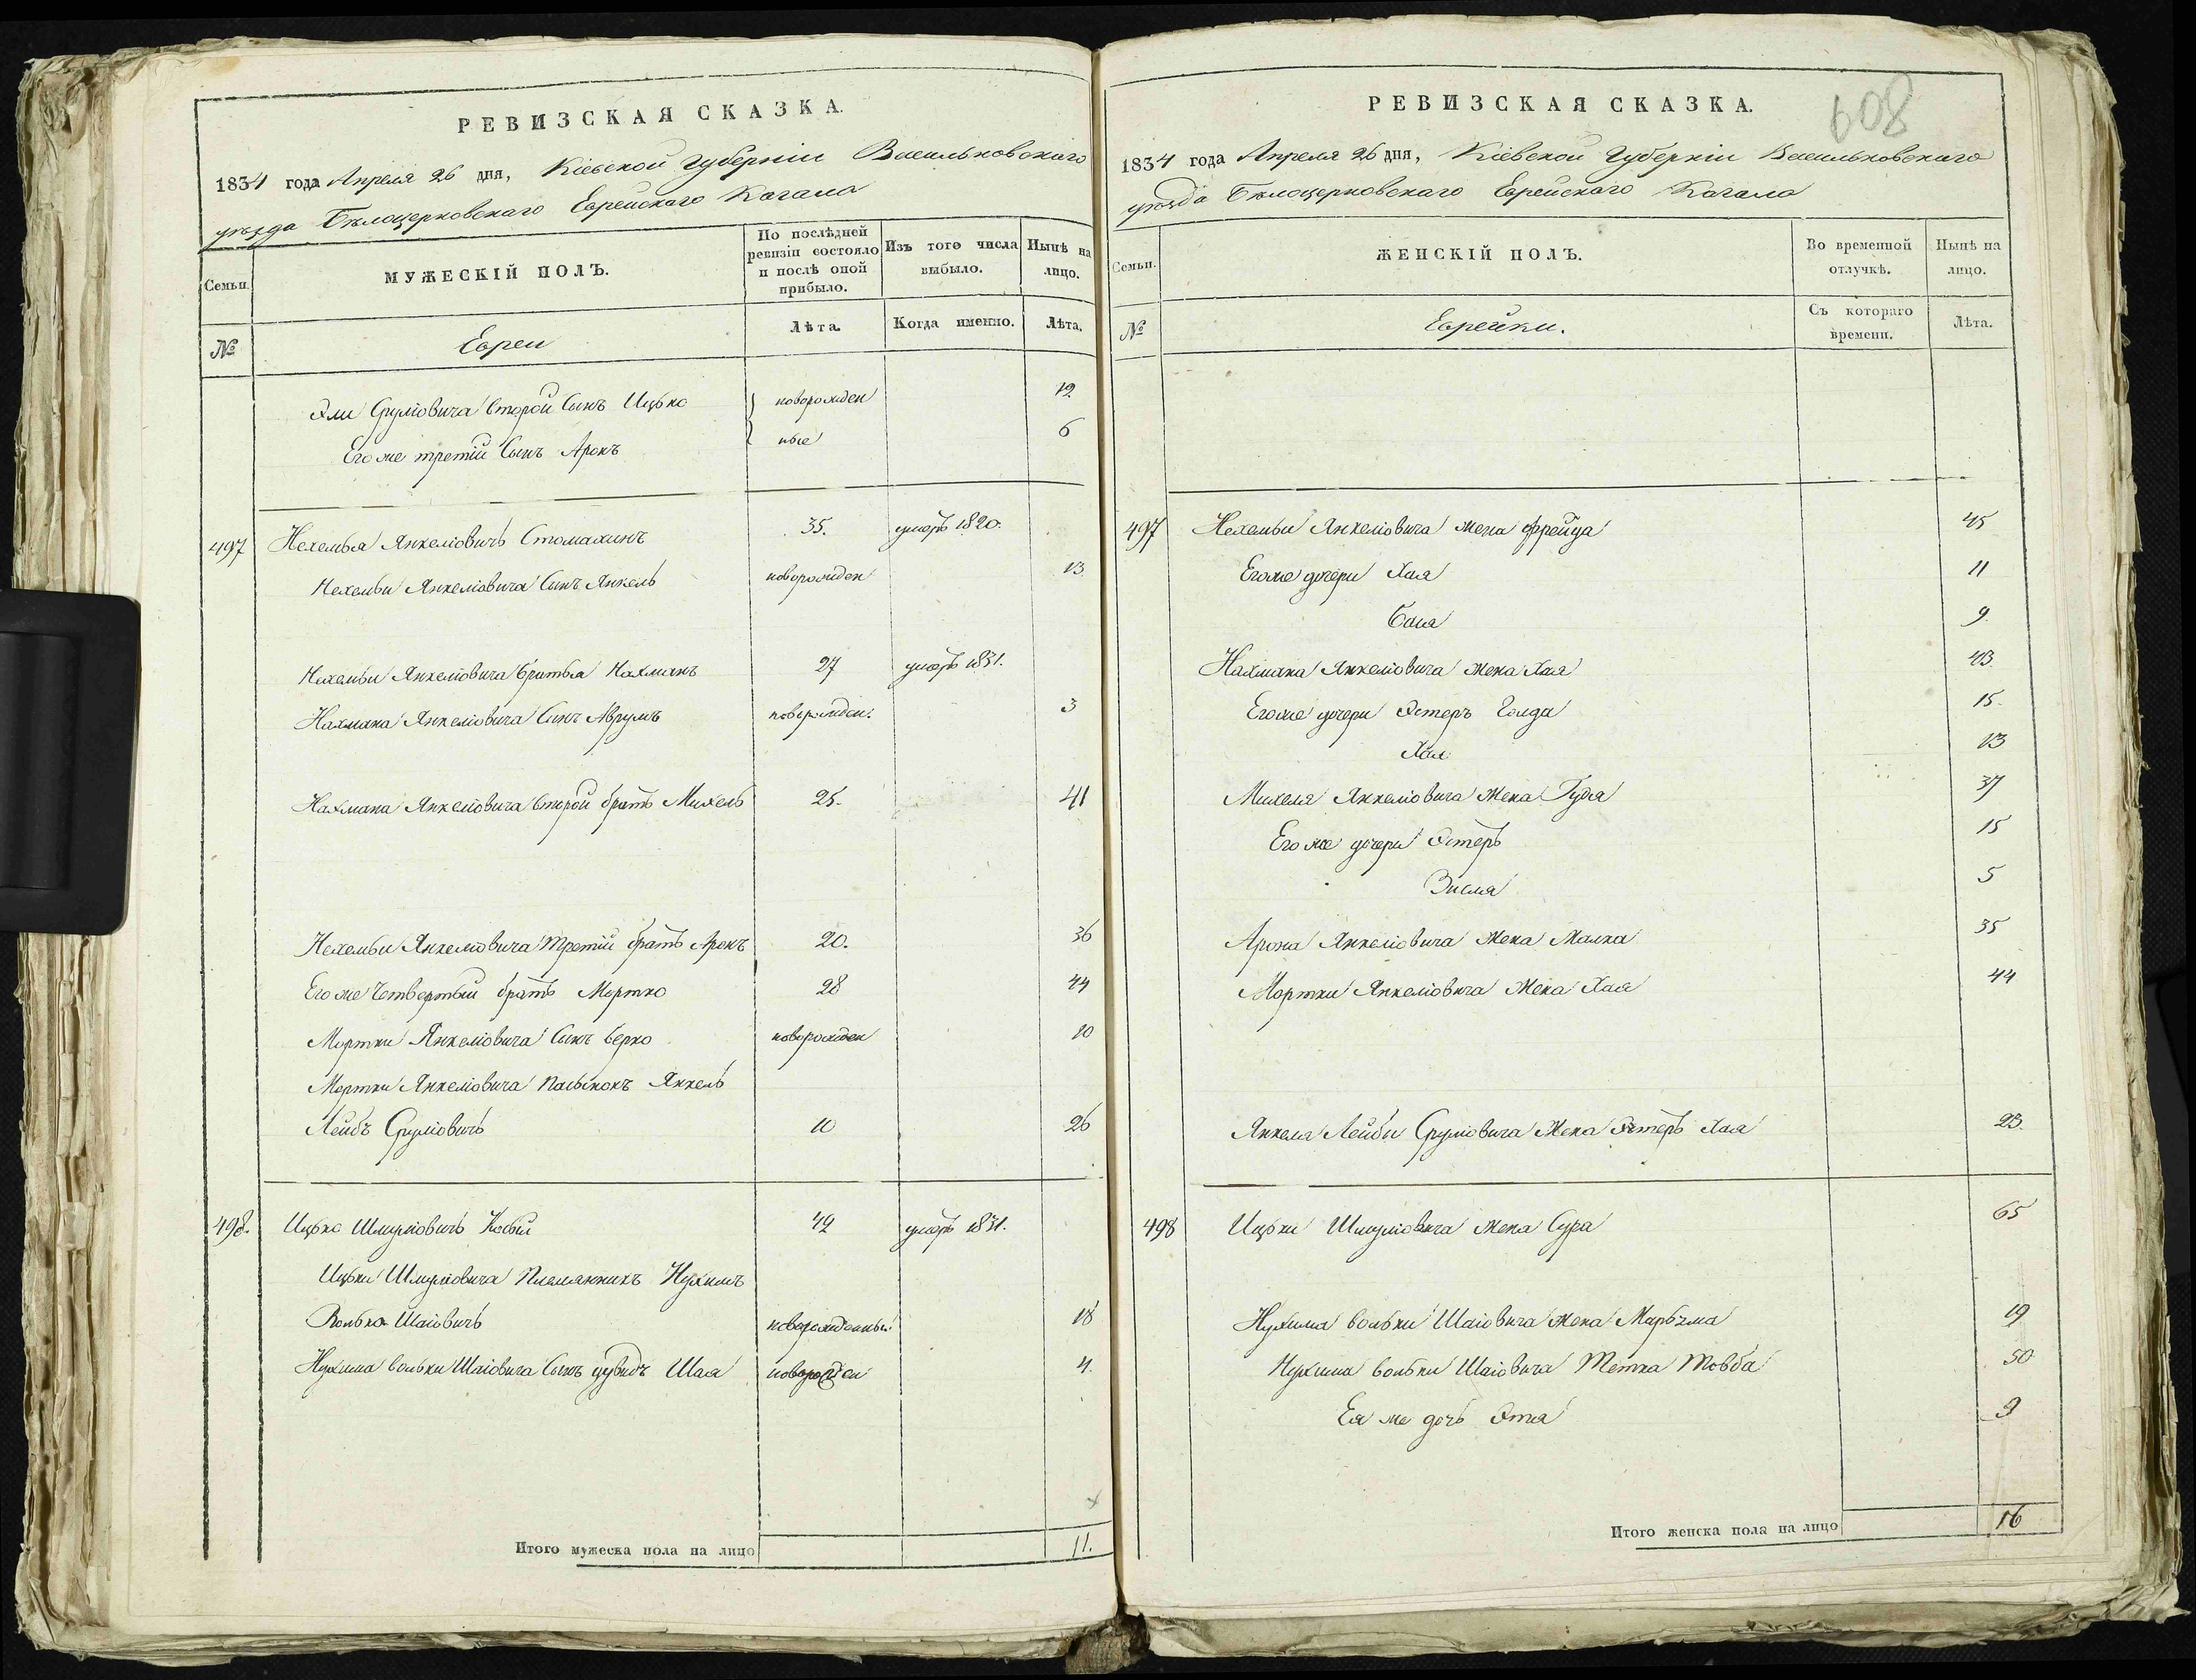 РЕВИЗСКАЯ СКАЗКА.
1834 года Апреля 26 дня, Кіевской Губерніи Васильковскаго
уѣзда Бѣлоцерковскаго Еврейскаго Кагала
Семьи.
МУЖЕСКІЙ ПОЛЪ.
По послѣдней ревизіи состояло и послѣ оной прибыло.
Изъ того числа выбыло.
Нынѣ на лицо.
№
Евреи
Лѣта.
Когда именно.
Лѣта.
Эли Сруліовича второй Сынъ Ицько новорожден 12
Его же третій Сынъ Аронъ ные 6
497 Нехемья Янкеліовичъ Стомахинъ 35. умеръ 1820.
Нехемьи Янкеліовича Сынъ Янкель новорожден 13
Нехемьи Янкеліовича братья Нахманъ 27 умеръ 1831.
Нахмана Янкеліовича Сынъ Аврумъ новорожден. 3
Нахмана Янкеліовича второй братъ Михель 25. 41
Нехемьи Янкеліовича третій братъ Аронъ 20. 36
Его же Четвертый братъ Мортко 28 44
Мортки Янкеліовича Сынъ Берко новорожден 10
Мортки Янкеліовича пасынокъ Янкель
Лейбъ Сруліовичъ 10 26
498. Ицько Шмуліовичъ 49 умеръ 1831.
Ицьки Шмуліовича Племянникъ Нухимъ
Волько Шаіовичъ новорожденный 18
Нухима вольки Шаіовича Сынъ дувидъ Шая новорожден 4.
Итого мужеска пола на лицо 11.
РЕВИЗСКАЯ СКАЗКА.
608
1834 года Апреля 26 дня, Кіевской Губерніи Васильковскаго
уѣзда Бѣлоцерковскаго Еврейскаго Кагала
Семьи.
ЖЕНСКІЙ ПОЛЪ.
Во временной отлучкѣ.
Нынѣ на лицо.
№
Еврейки.
Съ котораго времени.
Лѣта.
497 Нехемьи Янкеліовича жена Фрейда 45
Его же дочери Хая 11
Бася 9
Нахмана Янкеліовича жена Хая 43
Его же дочери Эстеръ Голда 15.
Хая 13
Михеля Янкеліовича жена Гудя 37
Его же дочери Эстеръ 15
Зисля 5
Арона Янкеліовича жена Малка 35
Мортки Янкеліовича жена Хая 44
Янкеля Лейбы Сруліовича жена Эстеръ Хая 23.
498 Ицьки Шмуліовича жена Сура 65
Нухима вольки Шаіовича жена Марьяма 19
Нухима вольки Шаіовича Тетка Товба 50
Ея же дочь Этя 9
Итого женска пола на лицо 16